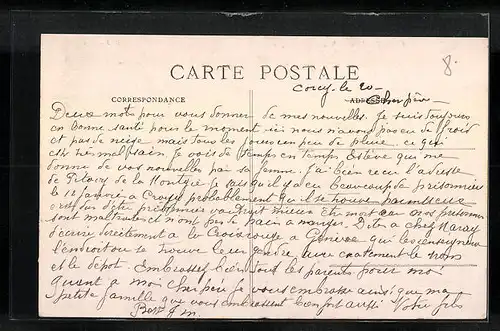 8.
CARTE POSTALE
Coucy, le 20
CORRESPONDANCE
ADRESSE
Cher père
Deux mots pour vous donner de mes nouvelles. Je suis toujours
en bonne santé pour le moment ici nous n'avons pas eu de froid
et pas de neige mais tous les jours un peu de pluie ce qui
est très malsain je vois de temps en temps Estève qui me
donne de vos nouvelles par sa femme. J'ai bien reçu l'adresse
de de la je sais qu'il y a eu beaucoup de prisonniers
le 12 janvier a probablement qu'il se trouve
d'être prisonnier vaudrait mieux être mort car nos prisonniers
sont maltraités et n'ont pas de pain a manger. Dites a chez
d'écrire directement a la Croix rouge a Genève qui les renseignera
l'endroit ou se trouve leur gendre exactement le nom
et le dépot. Embrassez bien tous les parents pour moi
quant a moi cher père je vous embrasse ainsi que ma
petite famille que vous embrasserez bien fort aussi Votre fils